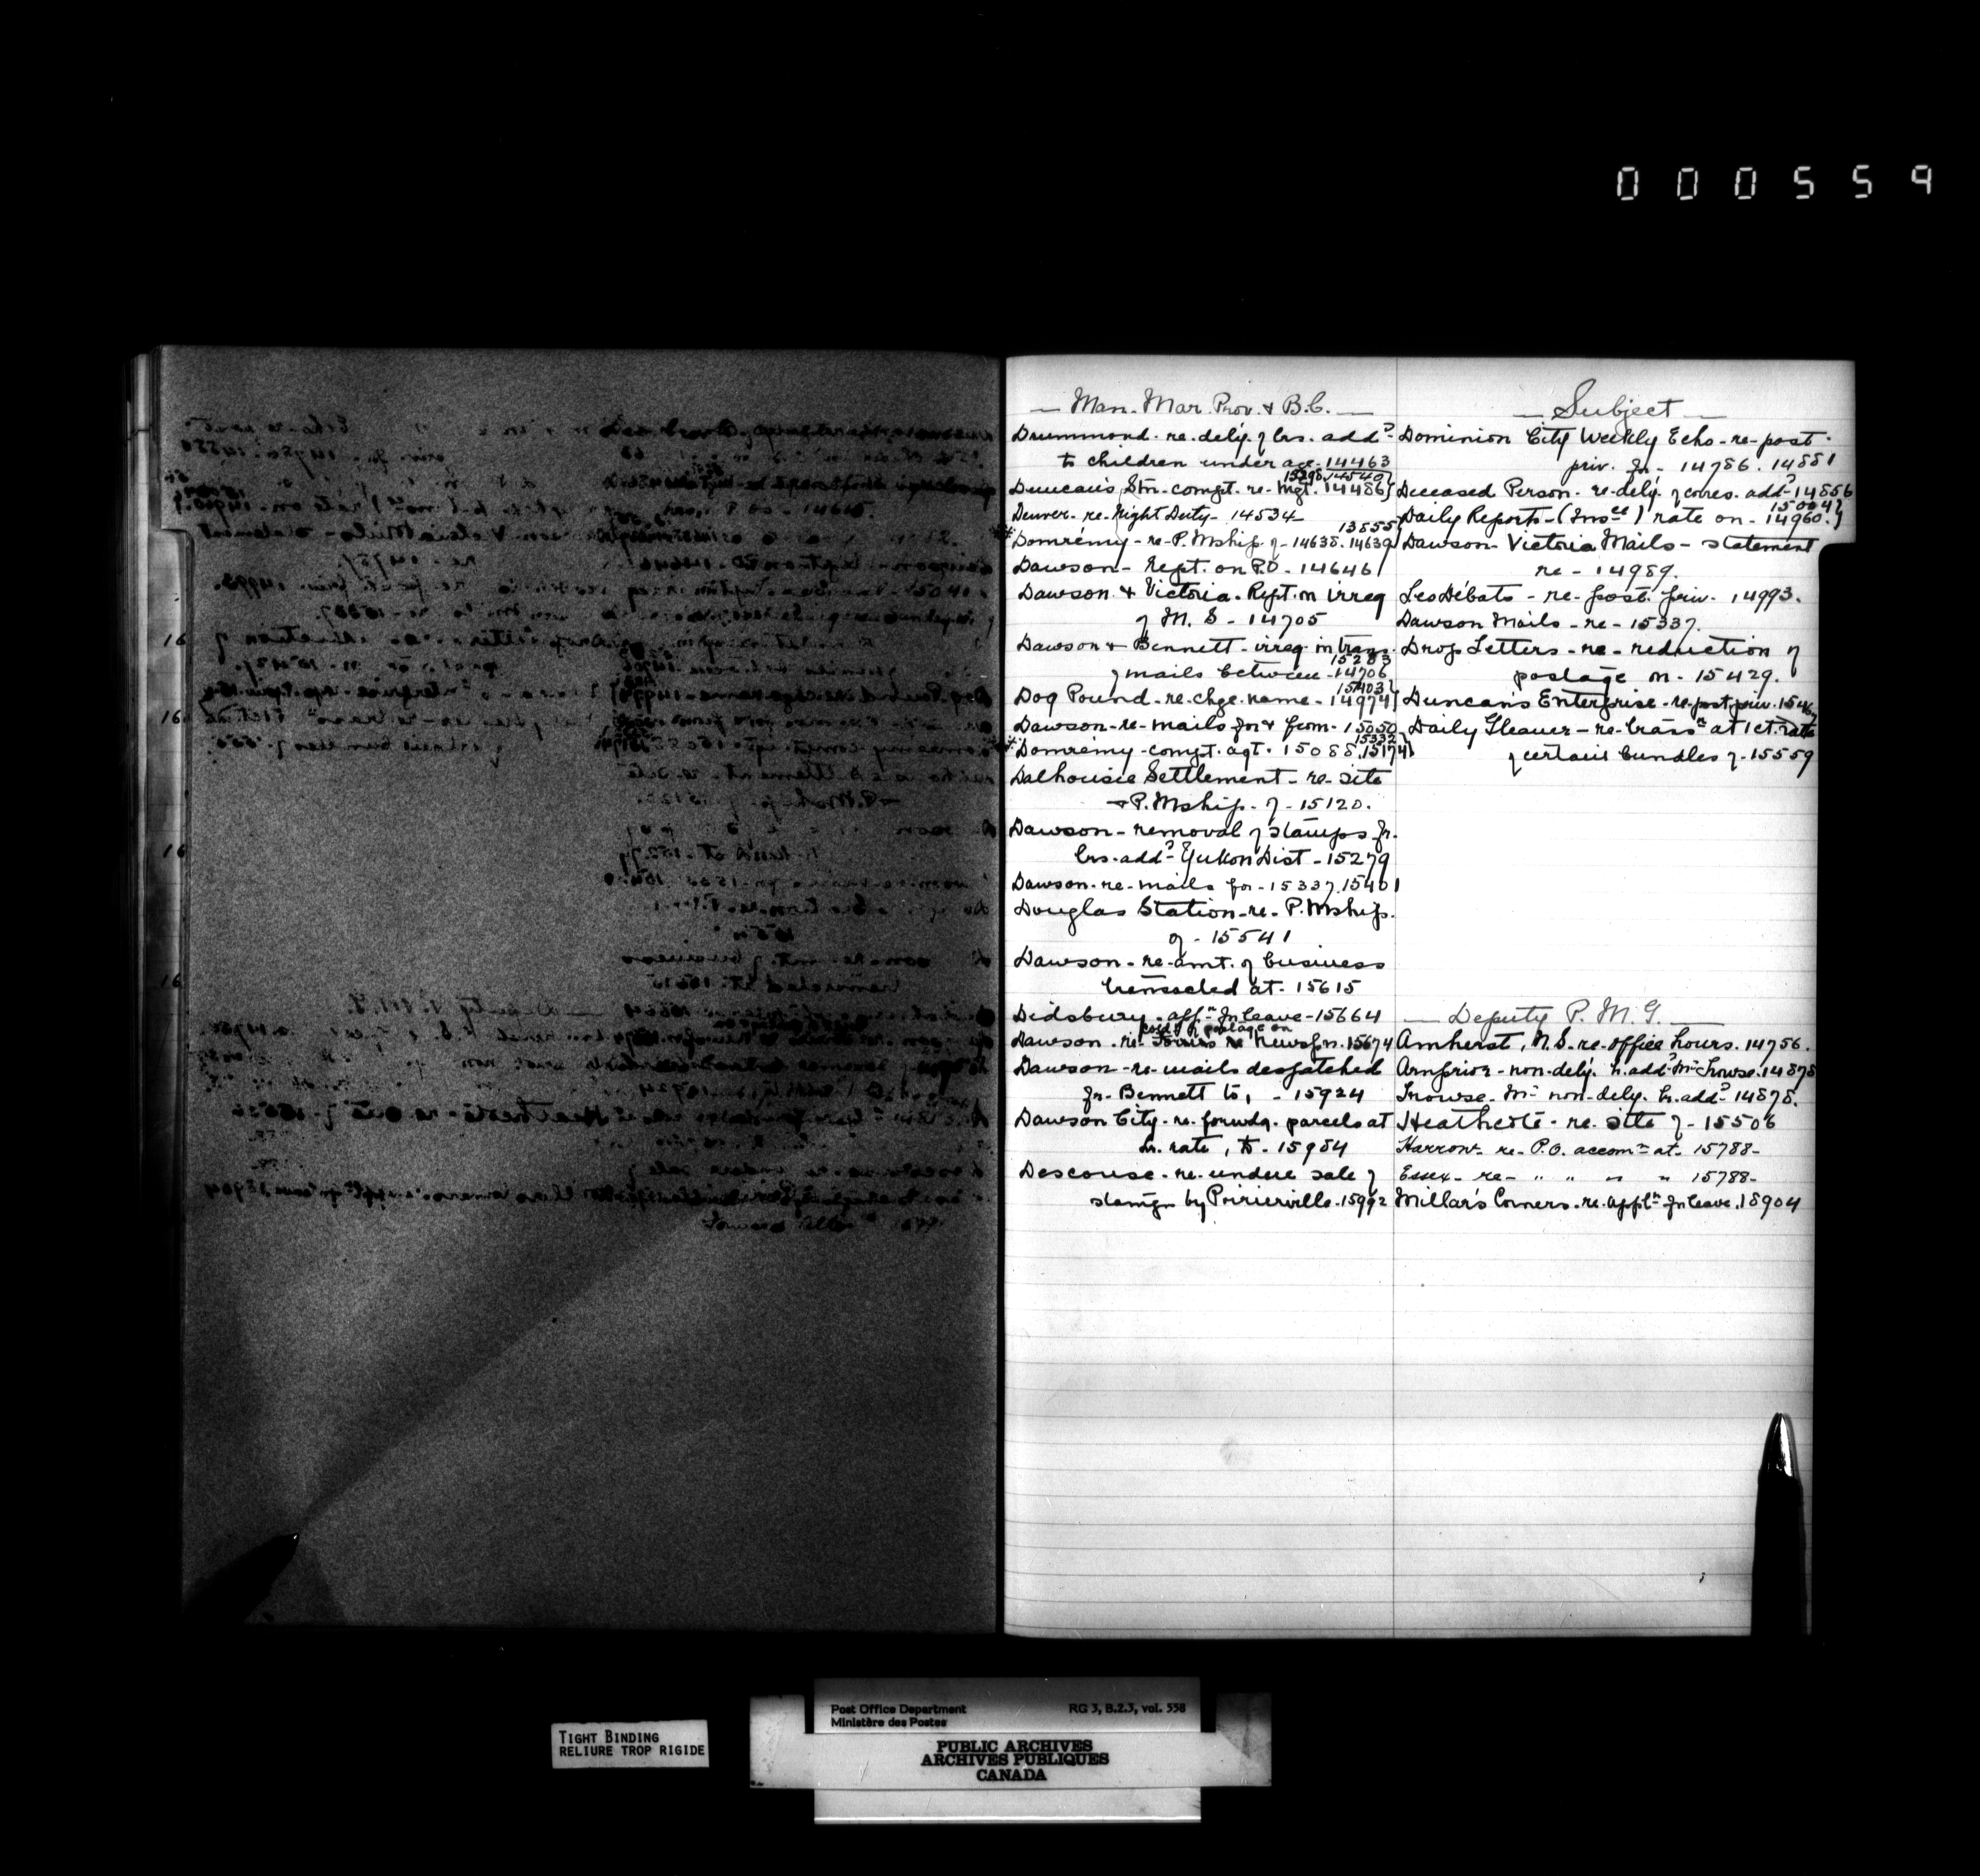 000559
— Man. Mar. Prov. & B.C. —
Drummond. re. dely. of lrs. addd
to children under age. 14463
15298. 14540
Duncan's Stn. compt. re. Mgt. 14486
Denver. re. Night Duty. 14534
13855
Domrémy. re. P. Mship. of. 14638. 14639
Dawson. Rept. on P.O. 14646
Dawson & Victoria. Rept. on irreg
of M. S. 14705
Dawson & Bennett. irreg. in trans.
15283
of mails between. 14706
15403
Dog Pound. re. chge. name. 14974
Dawson. re. mails for & from. 15050
15332
Domrémy. compt. agt. 15088. 15174
Dalhousie Settlement. re. site
& P. Mship. of. 15120.
Dawson. removal of stamps fr.
lrs. addd Yukon Dist. 15279
Dawson. re. mails for. 15337. 15401
Douglas Station. re. P. Mship.
of. 15541
Dawson. re. amt. of business
transacted at. 15615
Didsbury. appn for leave. 15664
postage on
Dawson. re. newsp. 15674
Dawson. re. mails despatched
fr. Bennett to, . 15924
Dawson City. re. forwdg. parcels at
lr. rate, to. 15984
Descouse. re. undue sale of
stamps by Poirierville. 15992
— Subject —
Dominion City Weekly Echo. re. post.
priv. for. 14786. 14881
Deceased Person. re. dely. of corres. addd 14856
15004
Daily Reports. (Insce) rate on. 14960.
Dawson Victoria Mails. statement
re. 14989.
Les Débats. re. post. priv. 14993.
Dawson Mails. re. 15337.
Drop Letters. re. reduction of
postage on. 15429.
Duncan's Enterprise. re. post priv.
Daily Gleaner. re. transn at 1ct. rate
of certain bundles of. 15559
— Deputy P. M. G. —
Amherst, N.S. re. office hours. 14756.
Arnprior. non. dely. lr. addd Mr 14878
Mr non. dely. lr. addd 14878.
Heathcote. re. site of. 15506
Harrow. re. P.O. accomn at. 15788
Essex. re. " " " " 15788
Millar's Corners. re. appln for leave. 15904
16
16
16
16
TIGHT BINDING
RELIURE TROP RIGIDE
Post Office Department
Ministère des Postes
RG 3, B.2.3, vol. 558
PUBLIC ARCHIVES
ARCHIVES PUBLIQUES
CANADA